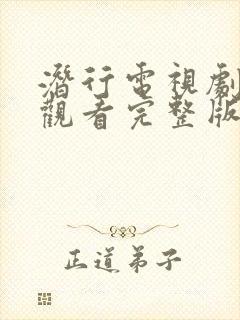 潛行電視劇
觀看完整版
正道弟子